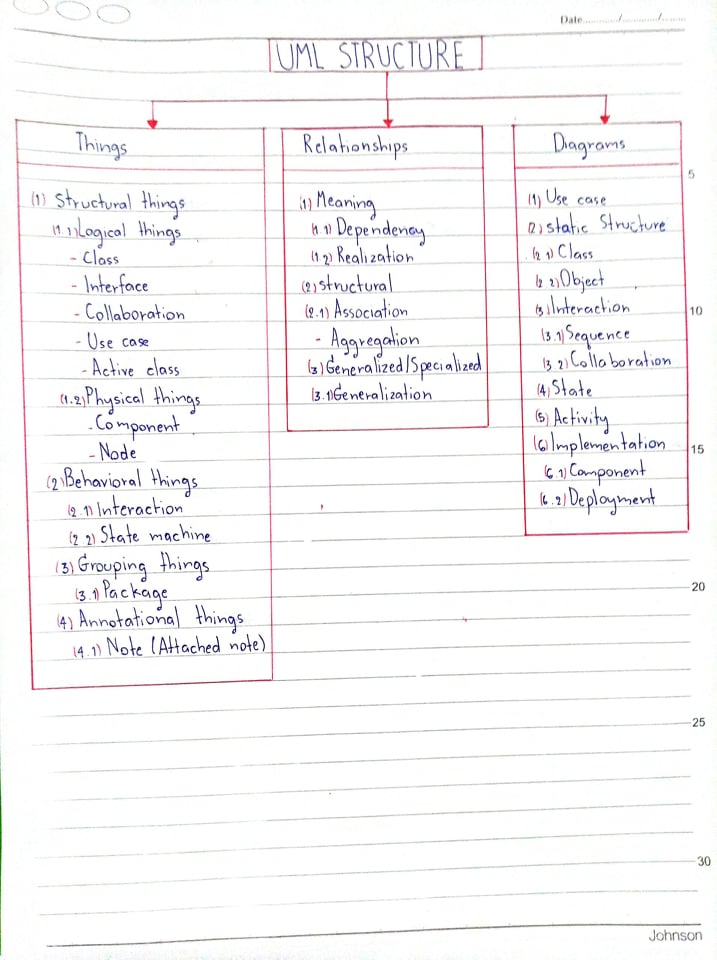 Date............/............/............
UML STRUCTURE
Things
(1) Structural things
(1.1) Logical things
- Class
- Interface
- Collaboration
- Use case
- Active class
(1.2) Physical things
- Component
- Node
(2) Behavioral things
(2.1) Interaction
(2.2) State machine
(3) Grouping things
(3.1) Package
(4) Annotational things
(4.1) Note (Attached note)
Relationships
(1) Meaning
(1.1) Dependency
(1.2) Realization
(2) structural
(2.1) Association
- Aggregation
(3) Generalized/Specialized
(3.1) Generalization
Diagrams
(1) Use case
(2) static Structure
(2.1) Class
(2.2) Object
(3) Interaction
(3.1) Sequence
(3.2) Collaboration
(4) State
(5) Activity
(6) Implementation
(6.1) Component
(6.2) Deployment
5
10
15
20
25
30
Johnson